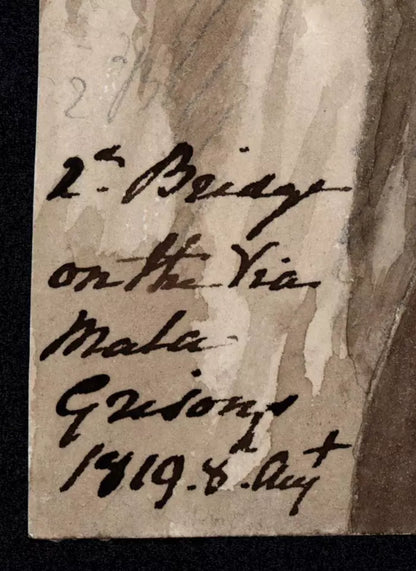 2d. Bridge
on the Via
Mala
Grisons
1819. 8th. Augt